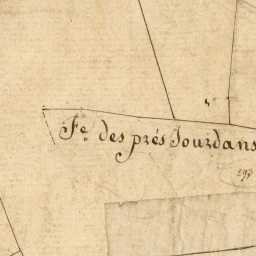 Fe. des prés Jourdans